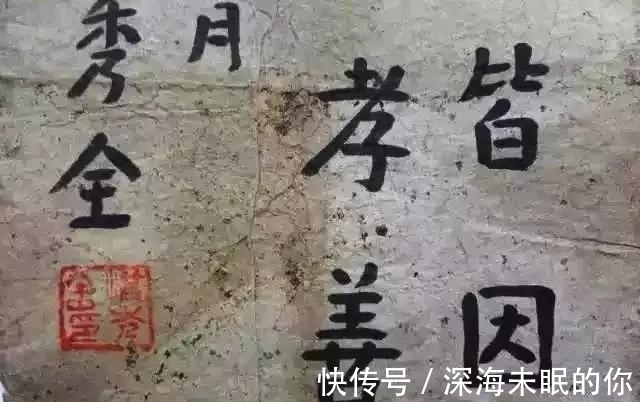 皆因
孝善
月
秀全
快传号 / 深海未眠的你